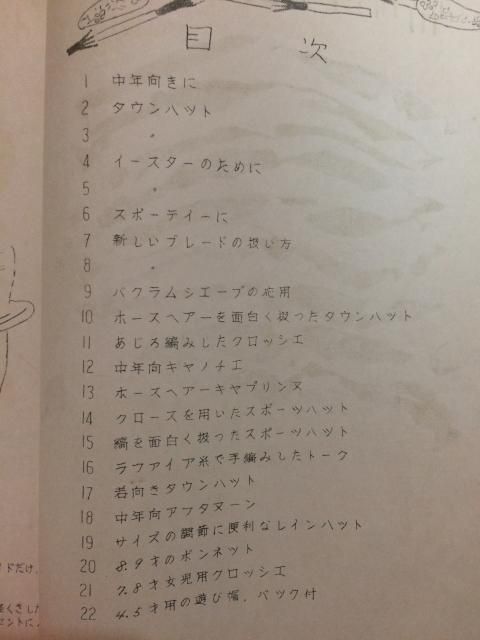 目次
1 中年向きに
2 タウンハット
3 〃
4 イースターのために
5 〃
6 スポーティーに
7 新しいブレードの扱い方
8 〃
9 バクラムシエープの応用
10 ホースヘアーを面白く扱ったタウンハット
11 あじろ編みしたクロッシエ
12 中年向キヤノチエ
13 ホースヘアーキヤプリンヌ
14 クロースを用いたスポーツハット
15 縞を面白く扱ったスポーツハット
16 ラフアイア糸で手編みしたトーク
17 若向きタウンハット
18 中年向アフタヌーン
19 サイズの調節に便利なレインハット
20 8.9才のボンネット
21 7.8才女児用クロッシエ
22 4.5才用の遊び帽、バック付
ドだけ